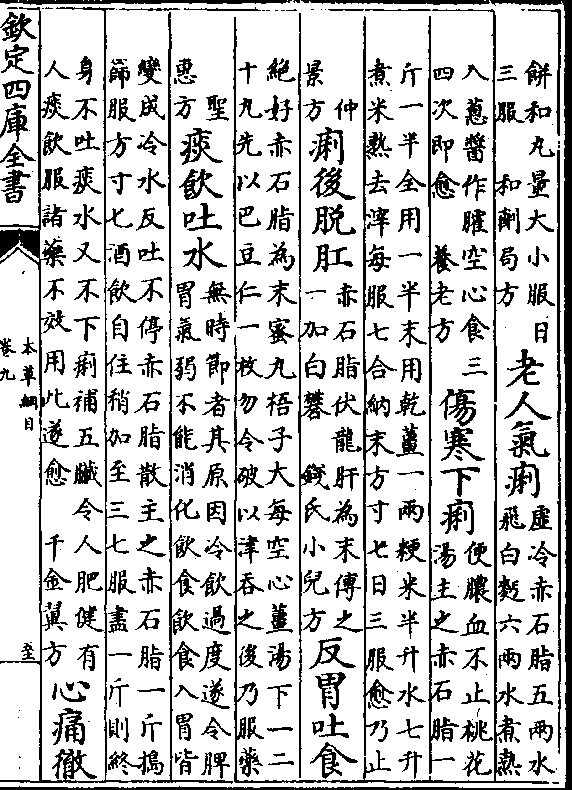 餅和丸量大小服日
三服　和劑局方
老人氣痢
虛冷赤石脂五兩水
飛白麫六兩水煮熟
入蔥醬作臛空心食三
四次即愈　養老方
傷寒下痢
便膿血不止桃花
湯主之赤石脂一
斤一半全用一半末用乾薑一兩粳米半升水七升
煮米熟去滓每服七合納末方寸匕日三服愈乃止
仲
景方
痢後脱肛
赤石脂伏龍肝為末傅之
一加白礬　錢氏小兒方
反胃吐食
絕好赤石脂為末蜜丸梧子大每空心薑湯下一二
十丸先以巴豆仁一枚勿令破以津吞之後乃服藥
聖
惠方
痰飲吐水
無時節者其原因冷飲過度遂令脾
胃氣弱不能消化飲食飲食入胃皆
變成冷水反吐不停赤石脂散主之赤石脂一斤搗
篩服方寸匕酒飲自住稍加至三七服盡一斤則終
身不吐痰水又不下痢補五臟令人肥健有
人痰飲服諸藥不效用此遂愈　千金翼方
心痛徹
欽定四庫全書
本草綱目
卷九
至